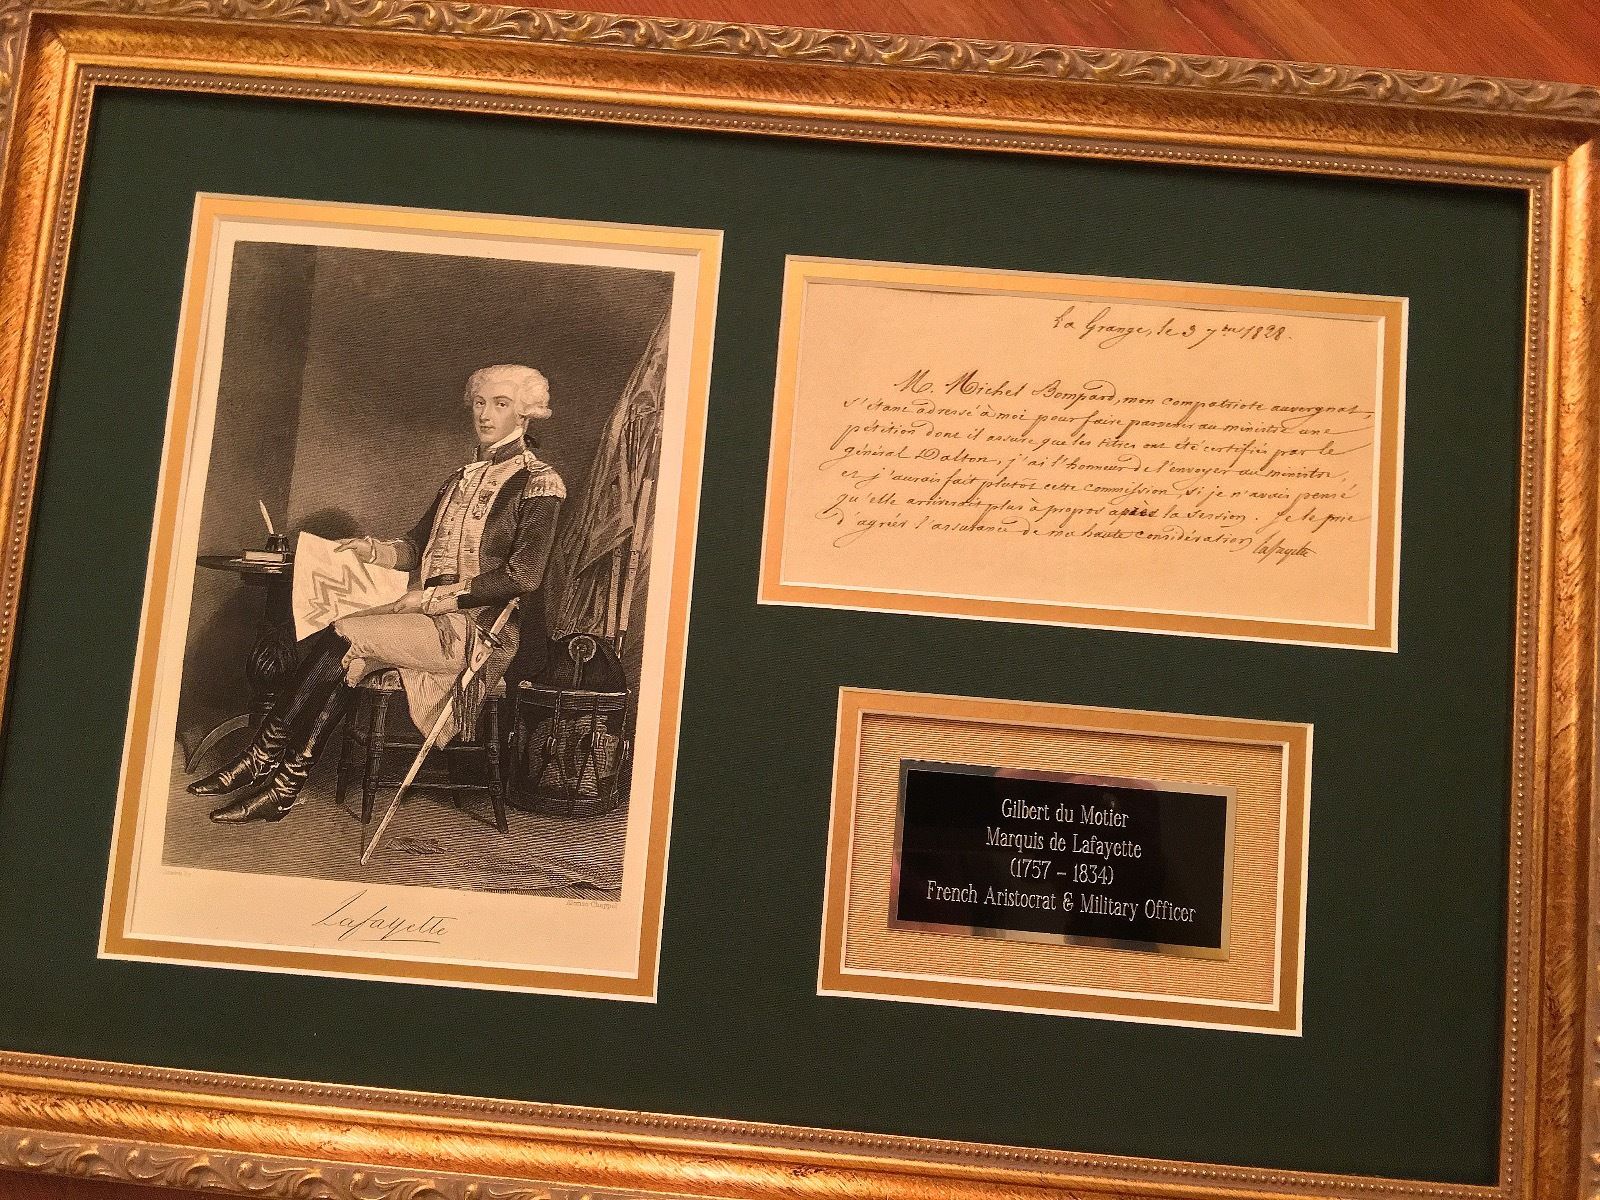 Lafayette
Alonzo Chappel
La Grange, le 3 7bre 1828.
M. Michel Bompard, mon compatriote auvergnat,
s'étant adressé à moi pour faire passer au ministre une
pétition dont il assure que les titres ont été certifiés par le
général Dalton, j'ai l'honneur de l'envoyer au ministre,
et j'aurais fait plutôt cette commission, si je n'avais pensé
qu'elle arriverait plus à propos après la session. Je le prie
d'agréer l'assurance de ma haute considération
Lafayette
Gilbert du Motier
Marquis de Lafayette
(1757 – 1834)
French Aristocrat & Military Officer